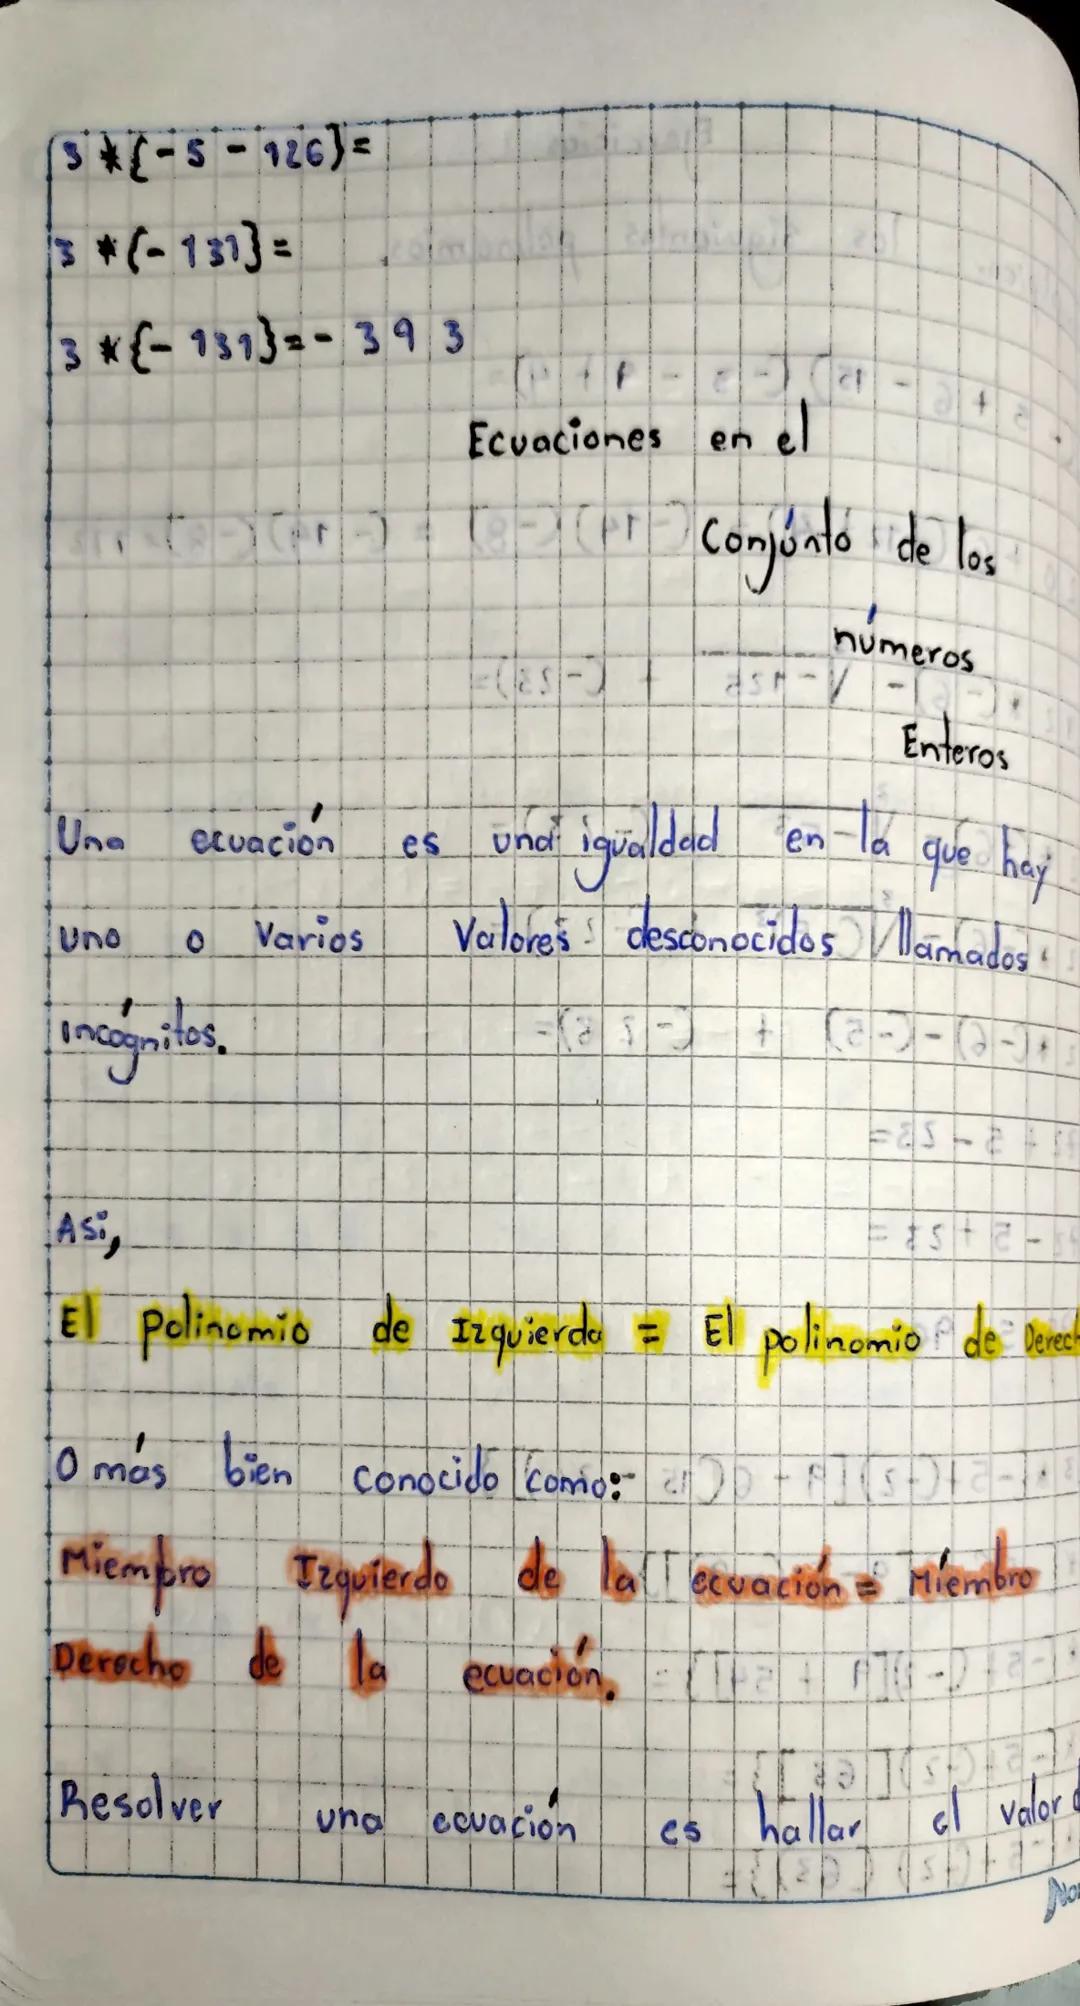 3 *{-5 - 126}=
3 *{-131}=
3 *{-131}=- 393
Ecuaciones en el
Conjúnto de los
números
Enteros
Una ecuación es una igualdad en la que hay
uno o varios Valores desconocidos llamados
incógnitos.
Asi,
El polinomio de Izquierda = El polinomio de Derech
O más bien conocido como:
Miembro Izquierdo de la ecuación = Miembro
Derecho de la ecuación.
Resolver una ecuación es hallar el valor d